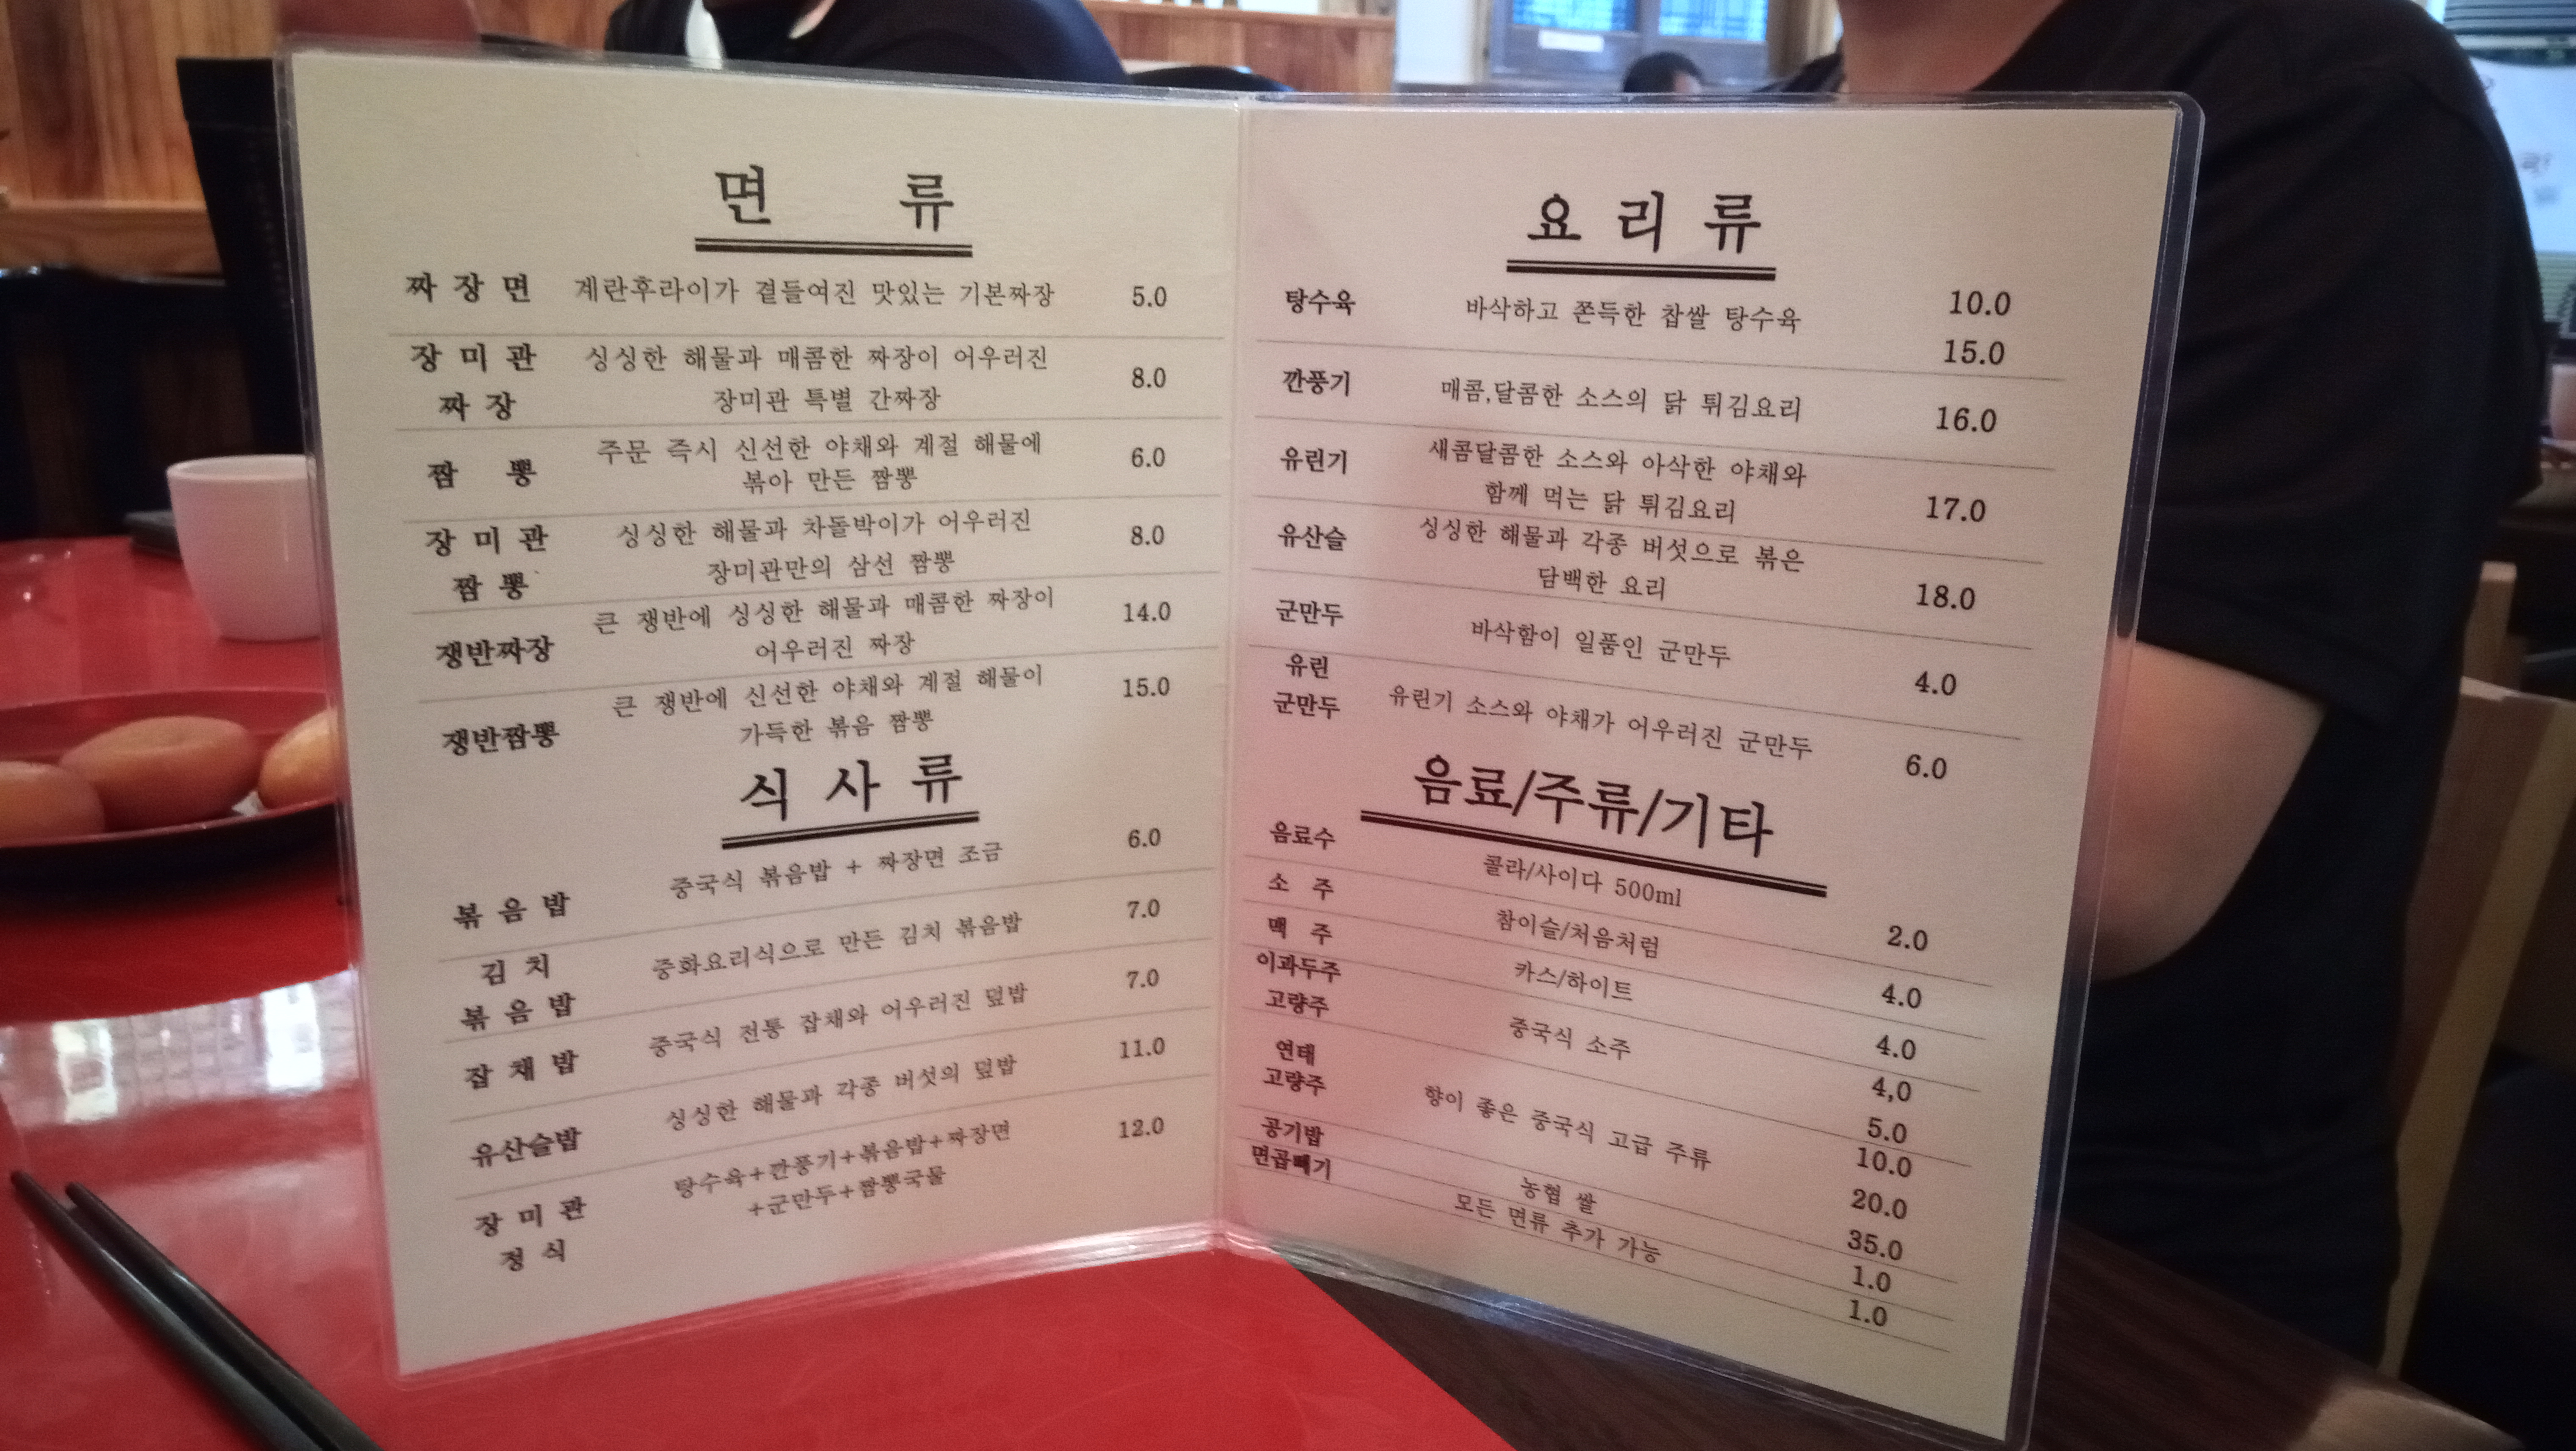 면 류
짜 장 면 계란후라이가 곁들여진 맛있는 기본짜장 5.0
장 미 관 싱싱한 해물과 매콤한 짜장이 어우러진
짜 장 장미관 특별 간짜장 8.0
짬 뽕 주문 즉시 신선한 야채와 계절 해물에 6.0
볶아 만든 짬뽕
장 미 관 싱싱한 해물과 차돌박이가 어우러진 8.0
짬 뽕 장미관만의 삼선 짬뽕
쟁반짜장 큰 쟁반에 싱싱한 해물과 매콤한 짜장이 14.0
어우러진 짜장
쟁반짬뽕 큰 쟁반에 신선한 야채와 계절 해물이 15.0
가득한 볶음 짬뽕
식 사 류
볶 음 밥 중국식 볶음밥 + 짜장면 조금 6.0
김 치
볶 음 밥 중화요리식으로 만든 김치 볶음밥 7.0
잡 채 밥 중국식 전통 잡채와 어우러진 덮밥 7.0
유산슬밥 싱싱한 해물과 각종 버섯의 덮밥 11.0
장 미 관 탕수육+깐풍기+볶음밥+짜장면 12.0
정 식 +군만두+짬뽕국물
요 리 류
탕수육 바삭하고 쫀득한 찹쌀 탕수육 10.0
15.0
깐풍기 매콤,달콤한 소스의 닭 튀김요리 16.0
유린기 새콤달콤한 소스와 아삭한 야채와
함께 먹는 닭 튀김요리 17.0
유산슬 싱싱한 해물과 각종 버섯으로 볶은
담백한 요리 18.0
군만두 바삭함이 일품인 군만두 4.0
유린
군만두 유린기 소스와 야채가 어우러진 군만두 6.0
음료/주류/기타
음료수 콜라/사이다 500ml 2.0
소 주 참이슬/처음처럼 4.0
맥 주 카스/하이트 4.0
이과두주 중국식 소주 4,0
고량주 5.0
10.0
연태 향이 좋은 중국식 고급 주류 20.0
고량주 35.0
공기밥 농협 쌀 1.0
면곱빼기 모든 면류 추가 가능 1.0